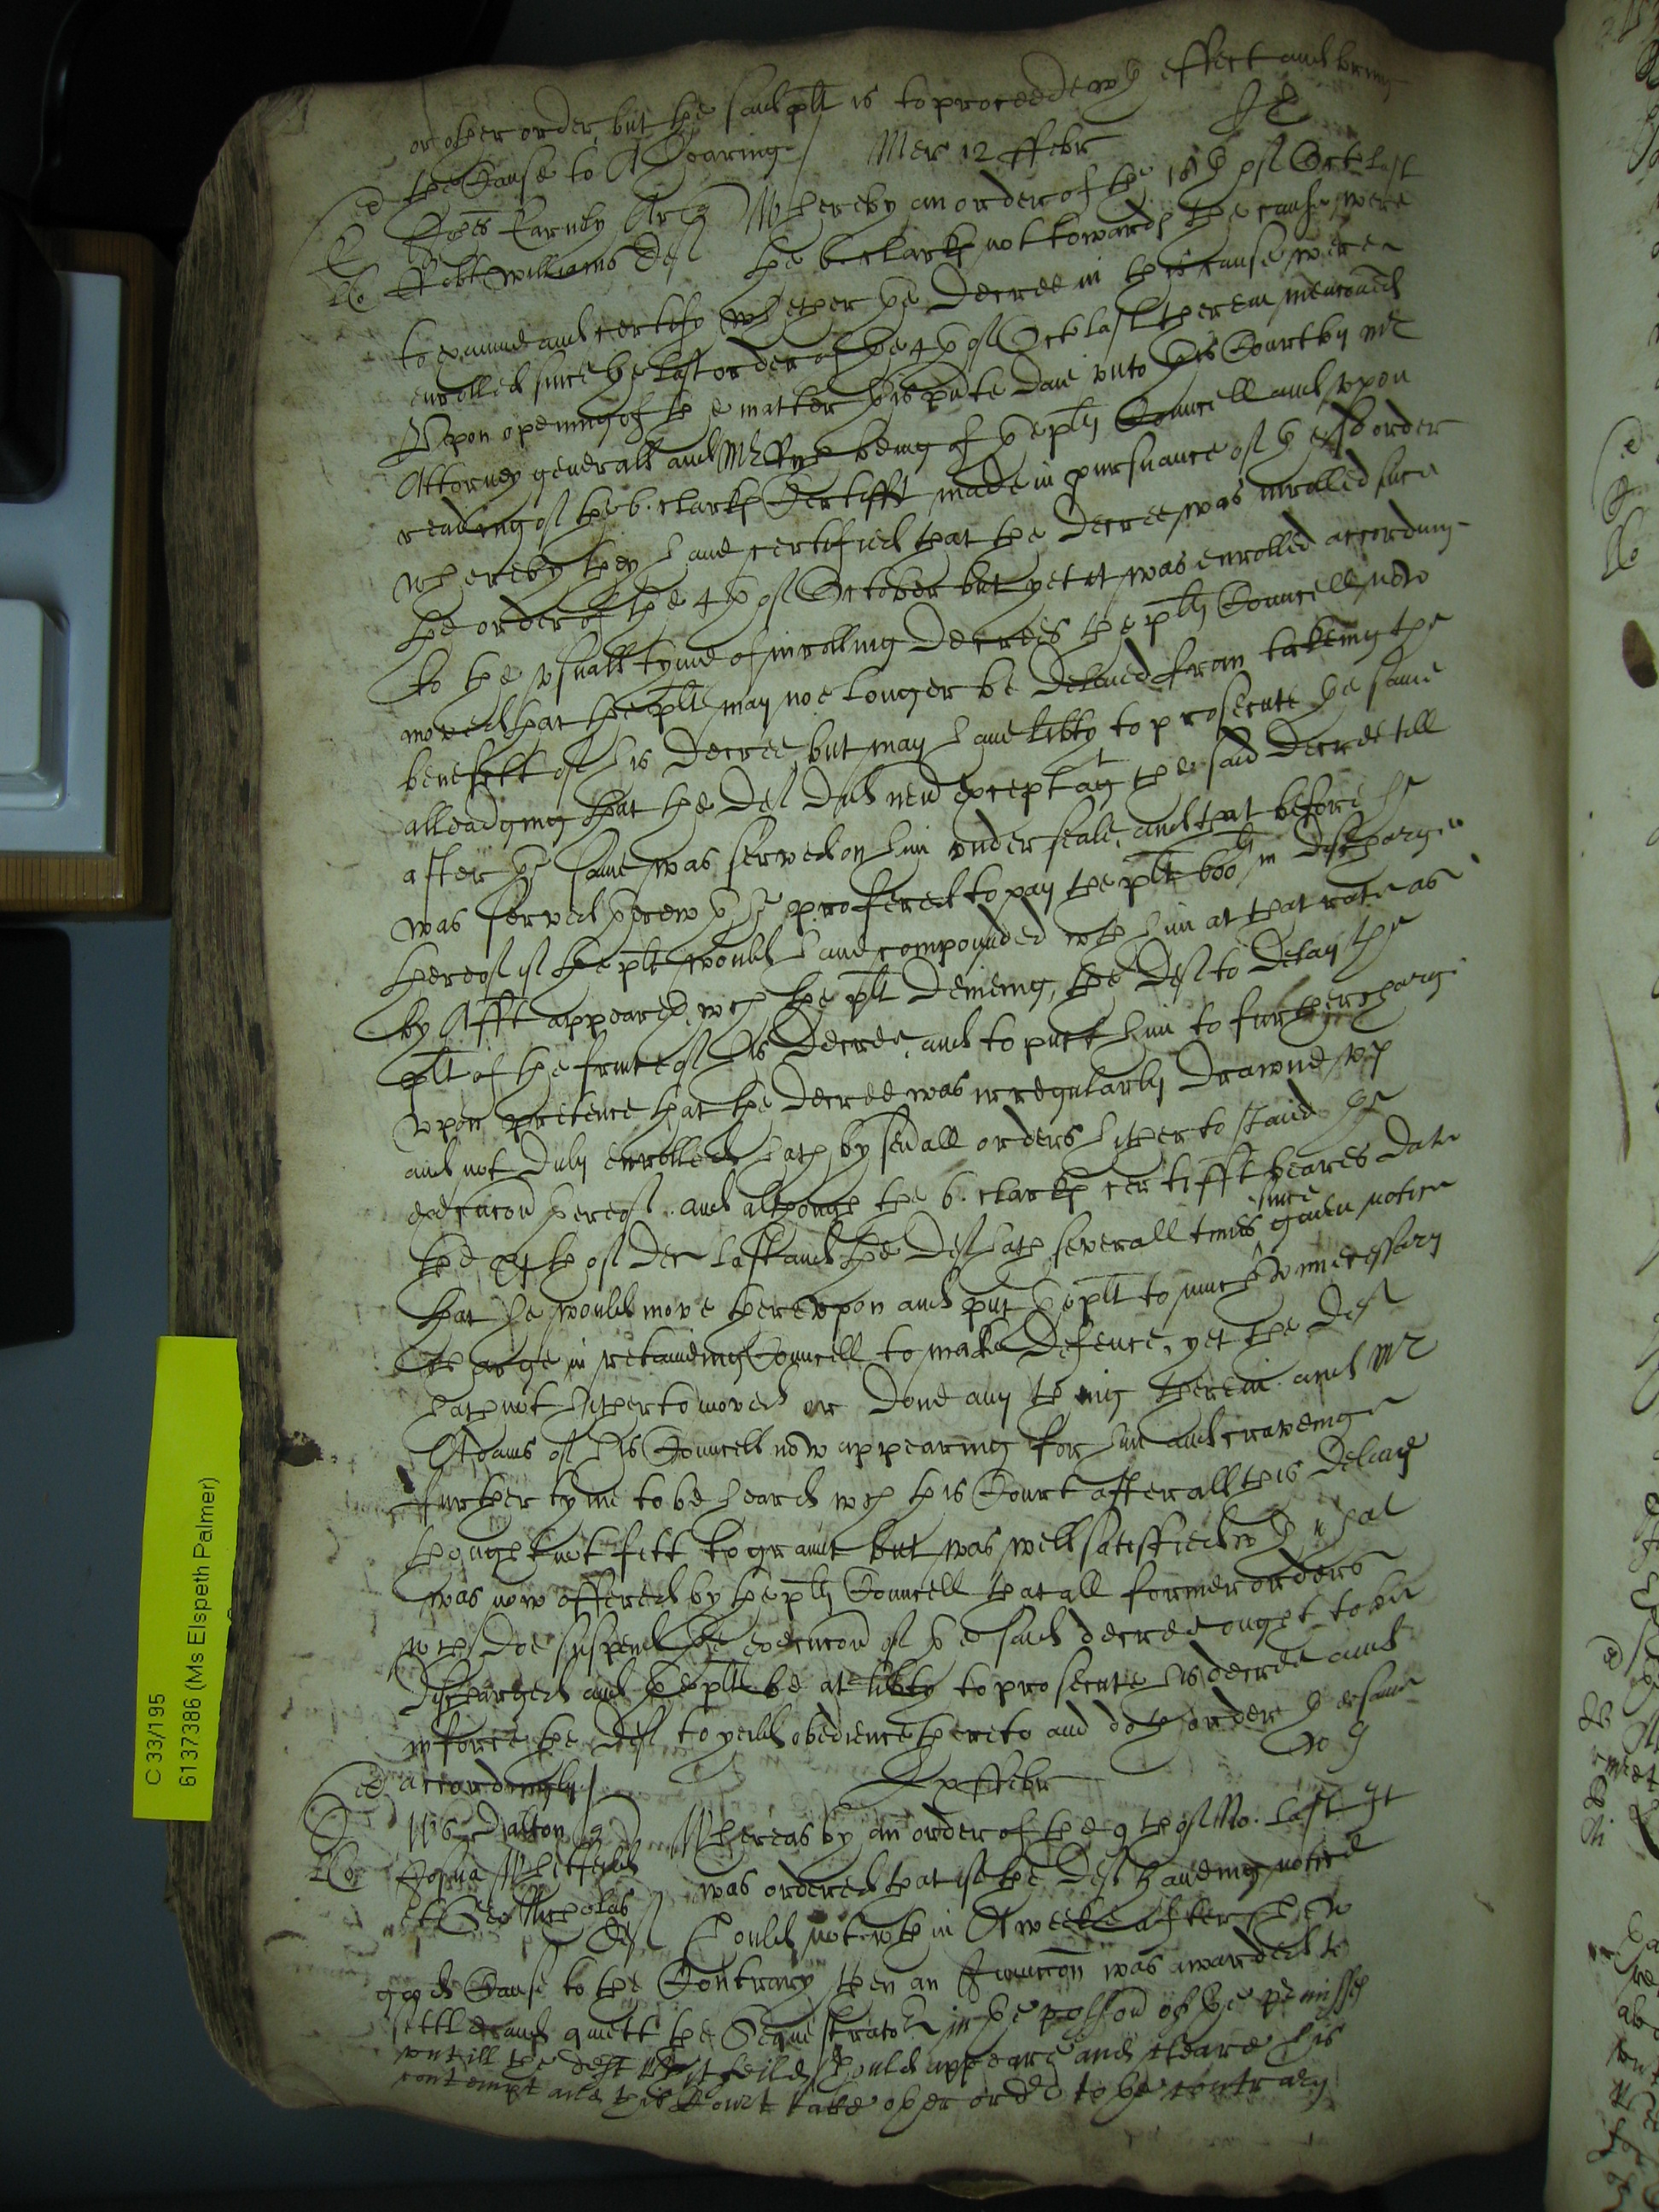 or other order, but the said plt is to proceede wth effect and bring
the Cause to A Hearing
Mer 12 ffebr
Earnly Ar q Whereby an order of the 18th of Octo last
Robt Williams Def the 6 clarks not towards the cause were
to examine and certefy whether the Decree in this cause were
enrolled since the last order of the 4th of Octo last therein menconed
Vpon opening of the matter this pnte daie vnto this Court by Mr
Attorney generall and Mr being of the plts Councell and vpon
reading of the 6. clarks Certifft made in pursuance of the sd order
whereby they have certified that the Decree was inrolled since
the order of the 4th of October but yet it was enrolled according
to the vsuall tyme of inrolling Decrees the plts Councell now
moved that the plte may noe longer be Delaied from takeing the
benefitt of his Decree but may have libty to prosecute the same
alleadging that the Def did nevr except agt the said Decree till
after the same was served on him vnder seale, and that before he
was served therewth he proffered to pay the plt 600li in discharge
thereof if the plt would have compounded wth him at that rate as
by Afft appeared, wch the plt Denieing, the Def to Delay the
plt of the fruite of his Decree, and to putt him to further charge
vpon pretence that the Decree was irregularly Drawne vp
and not Duly enrolled hath by sevall orders hitherto staied the
execucon thereof. and although the 6. clarks certifft beares Date
the of Decr last and the Def hath severall times since given notice
that he would move therevpon and put the plt to much vnnecessary
charge in retaineing Councell to make Defence, yet the Def
hath not hitherto moved or Done any thing therein and Mr
Adams of his Councell now appearing for him and craveing
further tyme to be heard wch this Court after all this Delaye
thought not fitt to graunt but was well satisffied wth what
was now offered by the plts Councell that all former orders
wch doe suspend the execucon of the said decree ought to be
Discharged and the plt be at libty to prosecute his decree and
inforce the Def to yeild obedience thereto and doth order the same
accordingly
ffebr
Dalton q Whereas by an order of the 9th of No. last It
Josua Whitfeild was ordered that if the Def haveing notice
et Geo Def should not wthin A weeke after shew
good Cause to the Contrary then an Iniuncon was awarded to
settle and quiett the Sequestrators in the possion of the premisses
vntill the deft Whitfeild should appeare and cleare his
contempt and this Court take other order to the contrary
C 33/195
6137386 (Ms Elspeth Palmer)